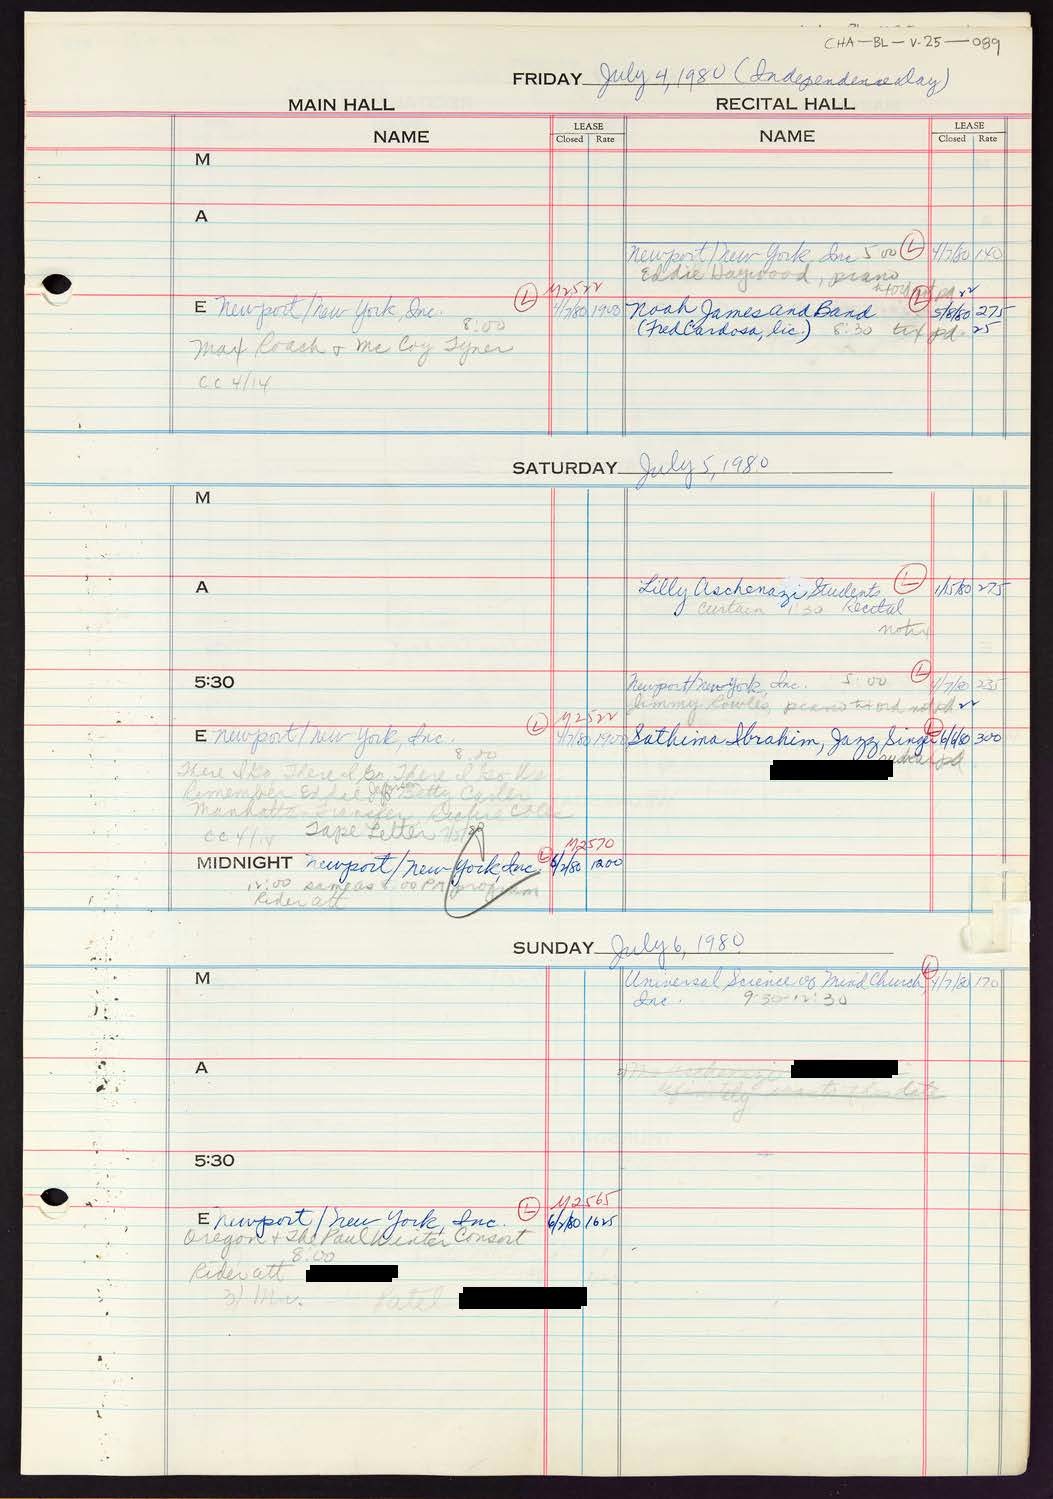 CHA-BL-V.25-089
FRIDAY July 4, 1980 (Independence day)
MAIN HALL
RECITAL HALL
NAME
LEASE
Closed Rate
NAME
LEASE
Closed Rate
M
A
Newport/New York, Inc 5:00 L 4/7/80 140
Eddie Haywood, piano
M2522
E Newport/New York, Inc. L 4/7/80 1900
8:00
Max Roach + McCoy Tyner
CC 4/14
Noah James and Band L 5/8/80 275
(Fred Cardosa, lic.) 8:30 txf pd. 25
SATURDAY July 5, 1980
M
A
Lilly Aschenazi Students L 1/15/80 275
Curtain 1:30 Recital
5:30
Newport/New York, Inc. 5:00 L 4/7/80 235
Jimmy Rowles, piano
M2522
E Newport/New York, Inc. L 4/7/80 1900
8:00
There I Go, There I Go, There I Go
Remember Eddie Jefferson Betty Carter
Manhattan Transfer Richie Cole
CC 4/14 Tape Letter
Sathima Ibrahim, Jazz Singer L 6/6/80 300
M2570
MIDNIGHT Newport/New York, Inc. L 6/2/80 1200
12:00 same as 8:00 PM program
Rider att
SUNDAY July 6, 1980
M
Universal Science of Mind Church, L 4/7/80 170
Inc. 9:30-12:30
A
Aschenazi
definitely wants this date
5:30
M2565
E Newport/New York, Inc. L 6/2/80 1625
Oregon + The Paul Winter Consort
8:00
Rider att
3) Mr. Patel